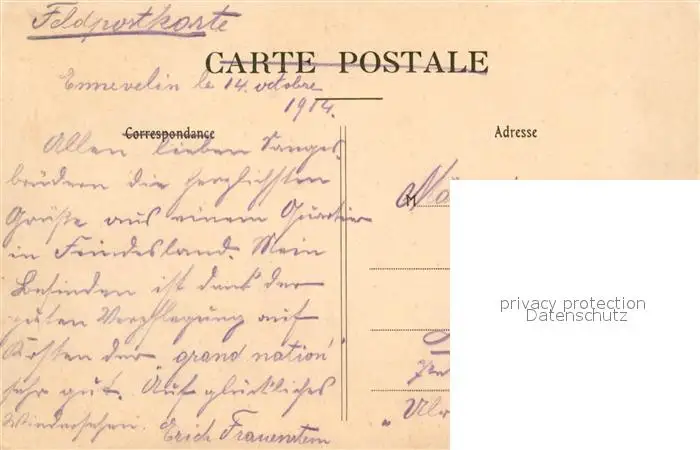 Feldpostkarte
CARTE POSTALE
Ennevelin le 14. octobre
1914.
Correspondance
Adresse
Allen lieben Sanges-
brüdern die herzlichsten
Grüße aus einem Quartier
in Feindesland. Mein
Befinden ist dank der
guten Verpflegung auf
Kosten der "grand nation"
sehr gut. Auf glückliches
Wiedersehen. Erich Frauenstein
M
privacy protection
Datenschutz